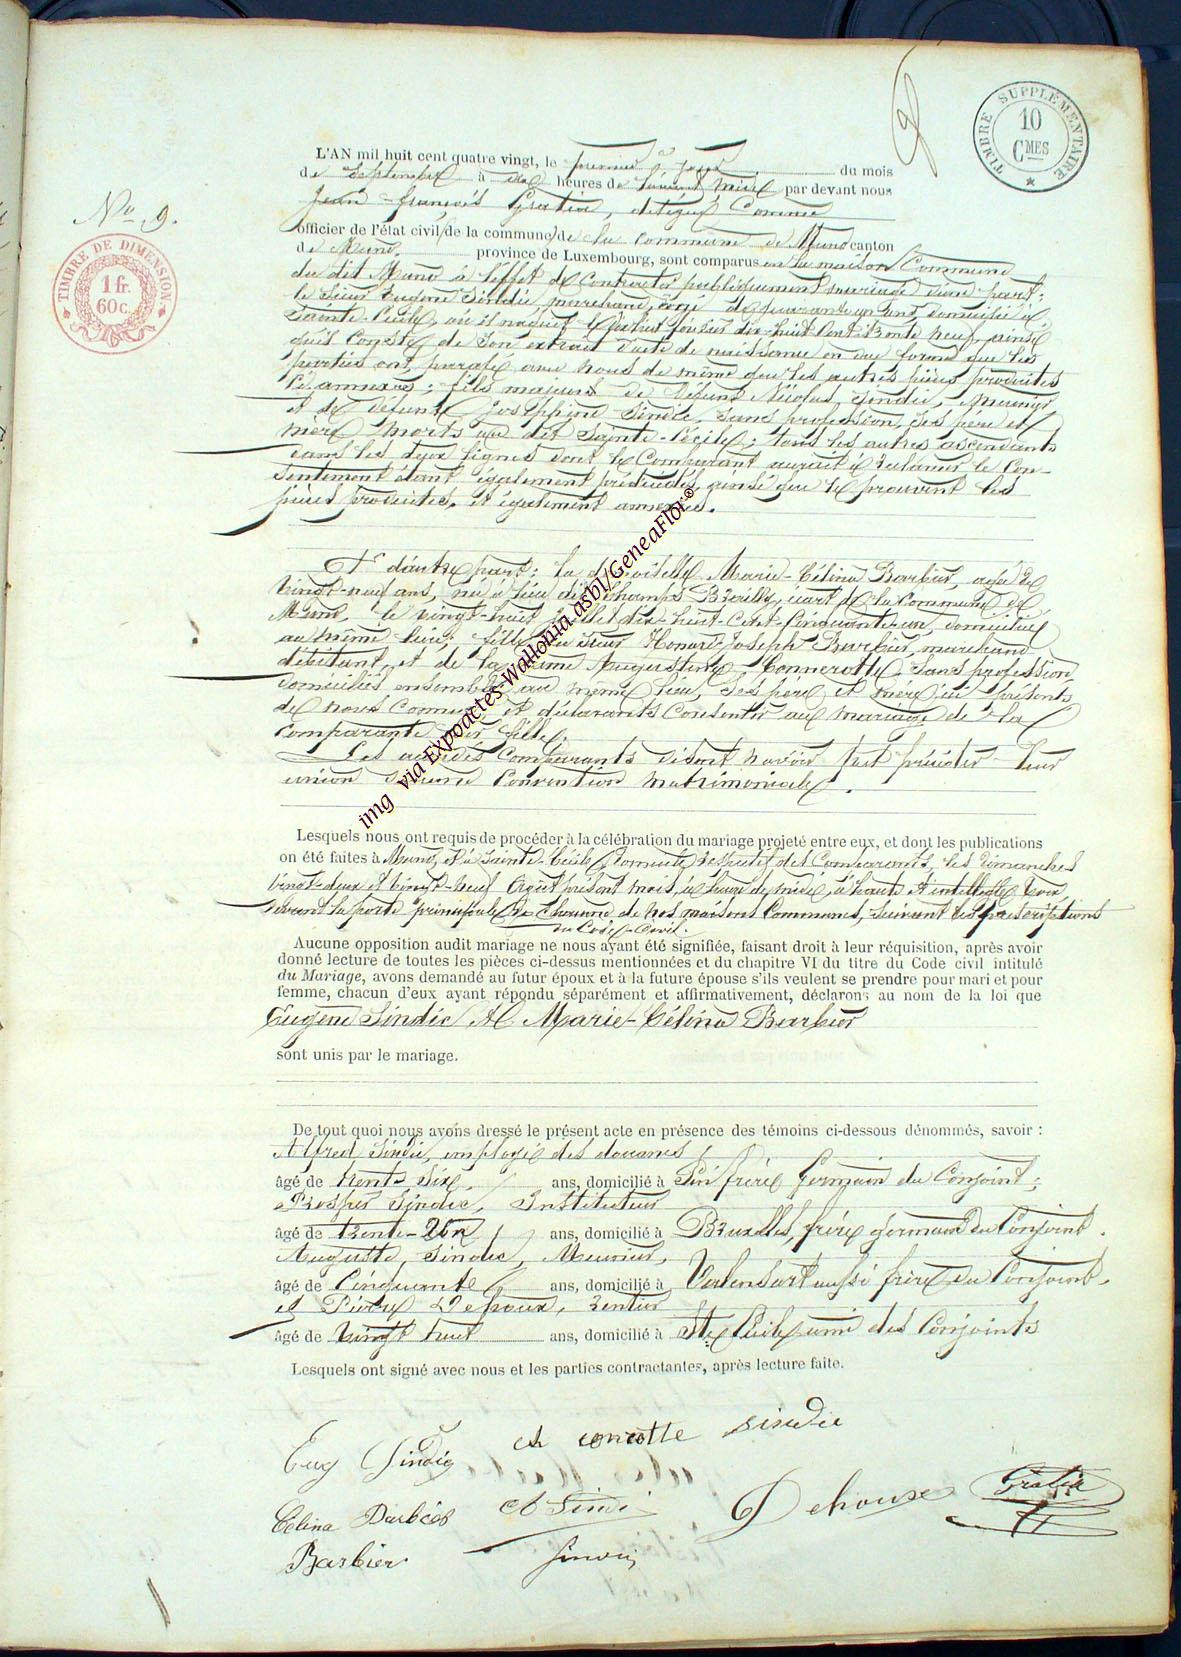 TIMBRE SUPPLÉMENTAIRE
10
CMES
L'AN mil huit cent quatre vingt, le premier jour du mois
de Septembre à dix heures de heures par devant nous
Jean-françois Gratia, délégué Comme
officier de l'état civil de la commune de la commune de Muno canton
de Muno, province de Luxembourg, sont comparus en la maison Commune
No 9.
TIMBRE DE DIMENSION
1 fr.
60 c.
du dit Muno à l'effet de contracter publiquement mariage d'une part:
le Sieur Eugène Sindic, marchand, âgé de quarante un ans, domicilié à
Sainte-Cécile, où il naquit le février dix-huit Cent trente neuf, ainsi
qu'il Conste de Son extrait d'acte de naissance en due forme que les
parties ont paraphé avec nous de même que les autres pièces produites
Ci annexées; fils majeur de Défunt Nicolas Sindic, Meunier
et de Défunte Josephine Sindic, sans profession, ses père et
mère morts au dit Sainte-Cécile; tous les autres ascendants
dans les deux lignes dont le Comparant aurait à réclamer le Con-
sentement étant également prédécédés, ainsi que le prouvent les
pièces produites, et également annexées.
Et d'autre part: la demoiselle Marie-Célina Barbier, agée de
Vingt-neuf ans, née à lieu dit Champs écart de la Commune de
Muno, le vingt-huit juillet dix-huit-Cent-Cinquante-un, domiciliée
au même lieu; fille du Sieur Honoré-Joseph Barbier, marchand
débitant, et de la Dame Augustine Connerotte, Sans profession,
domiciliés ensemble au même lieu, ses père et mère ici présents
de nous Connus et déclarants Consentir au mariage de la
Comparante leur fille.
Les Comparants disent n'avoir fait précéder leur
union d'aucune Convention Matrimoniale.
img via Expoactes-Wallonia asbl/GeneaFlor©
Lesquels nous ont requis de procéder à la célébration du mariage projeté entre eux, et dont les publications
on été faites à Muno, et à Sainte-Cécile, domicile respectif des Comparants, les dimanches
vingt-deux et vingt-neuf Août présent mois, à heure de midi, à haute et intelligible voix
devant la porte principale de Chacune de nos maisons Communes, suivant les prescriptions
du Code-Civil.
Aucune opposition audit mariage ne nous ayant été signifiée, faisant droit à leur réquisition, après avoir
donné lecture de toutes les pièces ci-dessus mentionnées et du chapitre VI du titre du Code civil intitulé
du Mariage, avons demandé au futur époux et à la future épouse s'ils veulent se prendre pour mari et pour
femme, chacun d'eux ayant répondu séparément et affirmativement, déclarons au nom de la loi que
Eugene Sindic et Marie-Célina Barbier
sont unis par le mariage.
De tout quoi nous avons dressé le présent acte en présence des témoins ci-dessous dénommés, savoir :
Alfred Sindic, employé des douanes
âgé de trente Six, ans, domicilié à frère Germain du Conjoint;
Prosper Sindic, Instituteur
âgé de trente-Un ans, domicilié à Bruxelles, frère germain du Conjoint.
Auguste Sindic, Meunier,
âgé de Cinquante ans, domicilié à aussi frère du Conjoint,
et rentier
âgé de vingt huit ans, domicilié à Ste Cécile, ami des Conjoints
Lesquels ont signé avec nous et les parties contractantes, après lecture faite.
Eug Sindic
conrotte
Sindic
Célina Barbier
A Sindic
Dehoux
Gratia
Barbier
Sindic